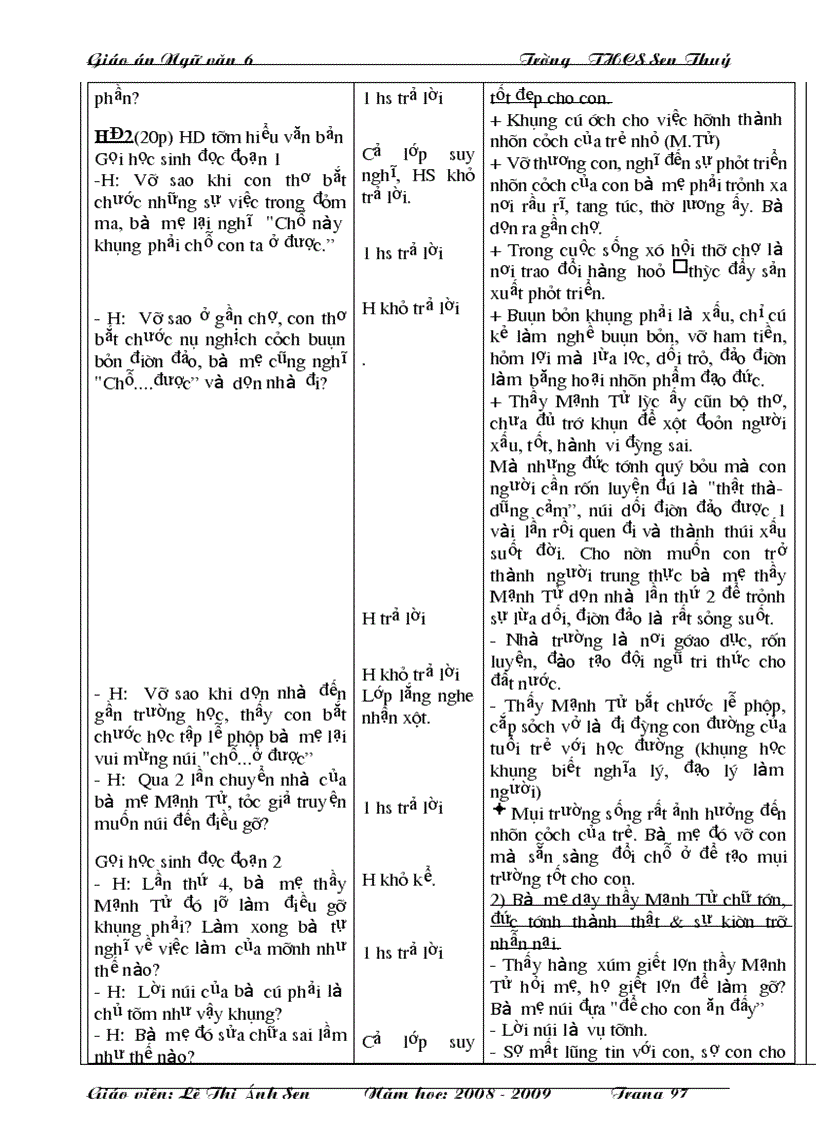 Giáo án Ngữ văn 6 Trờng THCS Sen Thuỷ
phần?
HĐ2(20p) HD tỡm hiểu văn bản
Gọi học sinh đọc đoạn 1
-H: Vỡ sao khi con thơ bắt
chước những sự việc trong đỏm
ma, bà mẹ lại nghĩ "Chỗ này
khụng phải chỗ con ta ở được.”
- H: Vỡ sao ở gần chợ, con thơ
bắt chước nụ nghịch cỏch buụn
bỏn điờn đảo, bà mẹ cũng nghĩ
"Chỗ....được” và dọn nhà đi?
- H: Vỡ sao khi dọn nhà đến
gần trường học, thấy con bắt
chước học tập lễ phộp bà mẹ lại
vui mừng núi "chỗ...ở được”
- H: Qua 2 lần chuyển nhà của
bà mẹ Mạnh Tử, tỏc giả truyện
muốn núi đến điều gỡ?
Gọi học sinh đọc đoạn 2
- H: Lần thứ 4, bà mẹ thầy
Mạnh Tử đó lỡ làm điều gỡ
khụng phải? Làm xong bà tự
nghĩ về việc làm của mỡnh như
thế nào?
- H: Lời núi của bà cú phải là
chủ tõm như vậy khụng?
- H: Bà mẹ đó sửa chữa sai lầm
như thế nào?
1 hs trả lời
Cả lớp suy
nghĩ, HS khỏ
trả lời.
1 hs trả lời
H khỏ trả lời
.
H trả lời
H khỏ trả lời
Lớp lắng nghe
nhận xột.
1 hs trả lời
H khỏ kể.
1 hs trả lời
Cả lớp suy
tốt đẹp cho con.
+ Khụng cú ớch cho việc hỡnh thành
nhõn cỏch của trẻ nhỏ (M.Tử)
+ Vỡ thương con, nghĩ đến sự phỏt triển
nhõn cỏch của con bà mẹ phải trỏnh xa
nơi rầu rĩ, tang túc, thờ lương ấy. Bà
dọn ra gần chợ.
+ Trong cuộc sống xó hội thỡ chợ là
nơi trao đổi hàng hoỏ □thỳc đẩy sản
xuất phỏt triển.
+ Buụn bỏn khụng phải là xấu, chỉ cú
kẻ làm nghề buụn bỏn, vỡ ham tiền,
hỏm lợi mà lừa lọc, dối trỏ, đảo điờn
làm băng hoại nhõn phẩm đạo đức.
+ Thầy Mạnh Tử lỳc ấy cũn bộ thơ,
chưa đủ trớ khụn để xột đoỏn người
xấu, tốt, hành vi đỳng sai.
Mà những đức tớnh quý bỏu mà con
người cần rốn luyện đú là "thật thà-
dũng cảm”, núi dối điờn đảo được 1
vài lần rồi quen đi và thành thúi xấu
suốt đời. Cho nờn muốn con trở
thành người trung thực bà mẹ thầy
Mạnh Tử dọn nhà lần thứ 2 để trỏnh
sự lừa dối, điờn đảo là rất sỏng suốt.
- Nhà trường là nơi gớao dục, rốn
luyện, đào tạo đội ngũ tri thức cho
đất nước.
- Thấy Mạnh Tử bắt chước lễ phộp,
cắp sỏch vở là đi đỳng con đường của
tuổi trẻ với học đường (khụng học
khụng biết nghĩa lý, đạo lý làm
người)
✦ Mụi trường sống rất ảnh hưởng đến
nhõn cỏch của trẻ. Bà mẹ đó vỡ con
mà sẵn sàng đổi chỗ ở để tạo mụi
trường tốt cho con.
2) Bà mẹ dạy thầy Mạnh Tử chữ tớn,
đức tớnh thành thật & sự kiờn trỡ
nhẫn nại.
- Thấy hàng xúm giết lợn thầy Mạnh
Tử hỏi mẹ, họ giết lợn để làm gỡ?
Bà mẹ núi đựa "để cho con ăn đấy”
- Lời núi là vụ tỡnh.
- Sợ mất lũng tin với con, sợ con cho
Giáo viên: Lê Thị Ánh Sen Năm học: 2008 - 2009 Trang 97